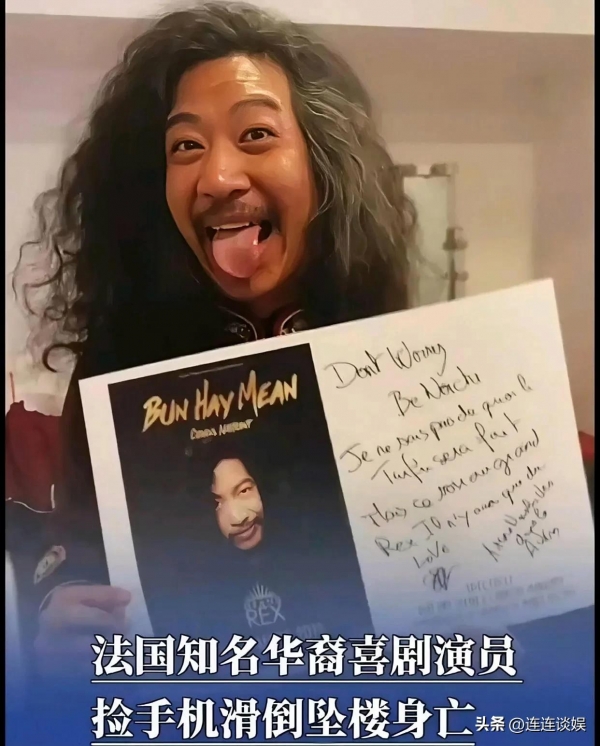 BUN HAY MEAN
Don't Worry
Be Noichi
Je ne sais pas de quoi le
sera fait
ce soir au grand
Rex Il n'y aura que du
LOVE
REX
法国知名华裔喜剧演员
捡手机滑倒坠楼身亡
头条 @连连谈娱